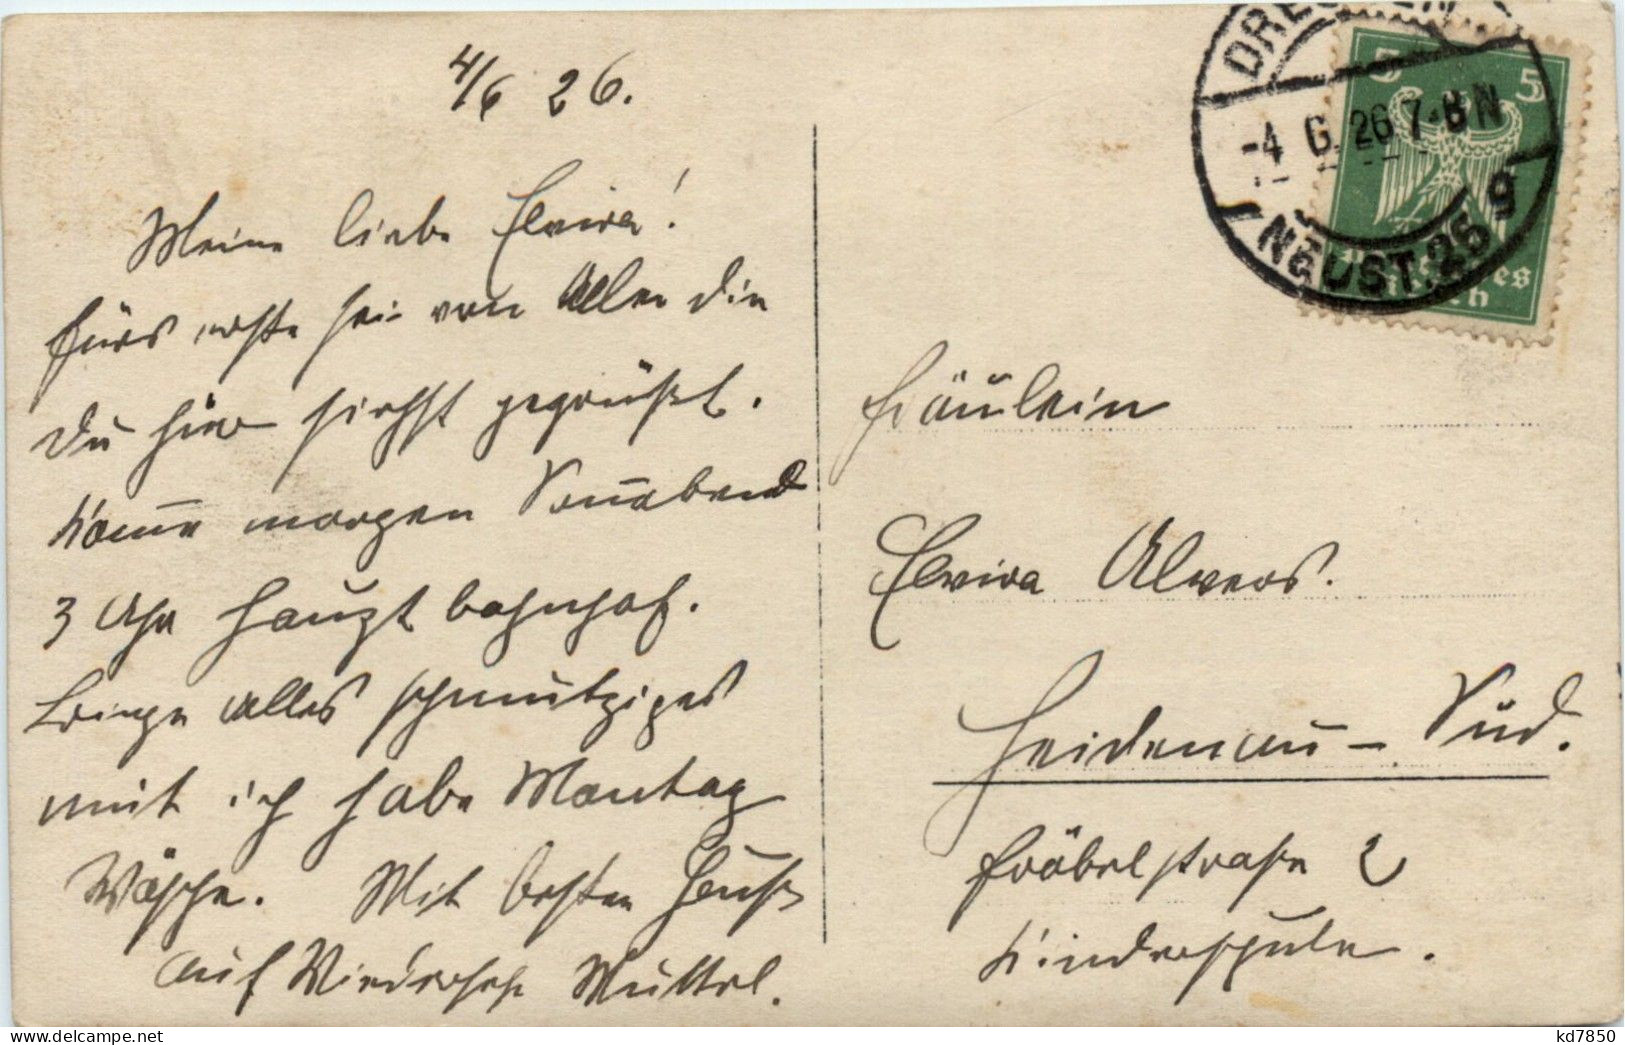 4/6 26.
Meine liebe Elvira!
fürs erste sei von Allen die
Du hier siehst gegrüßt.
Komme morgen Sonnabend
3 Uhr Hauptbahnhof.
bringe alles schmutziges
mit ich habe Montag
Wäsche. Mit besten Gruß
auf Wiedersehn Muttel.
DRESDEN
-4. 6. 26 7-8 N
NEUST. 25 g
5 5
Deutsches
Reich
Fräulein
Elvira Alvers.
Heidenau - Süd.
Fröbelstraße 2
Kinderschule.
kd7850